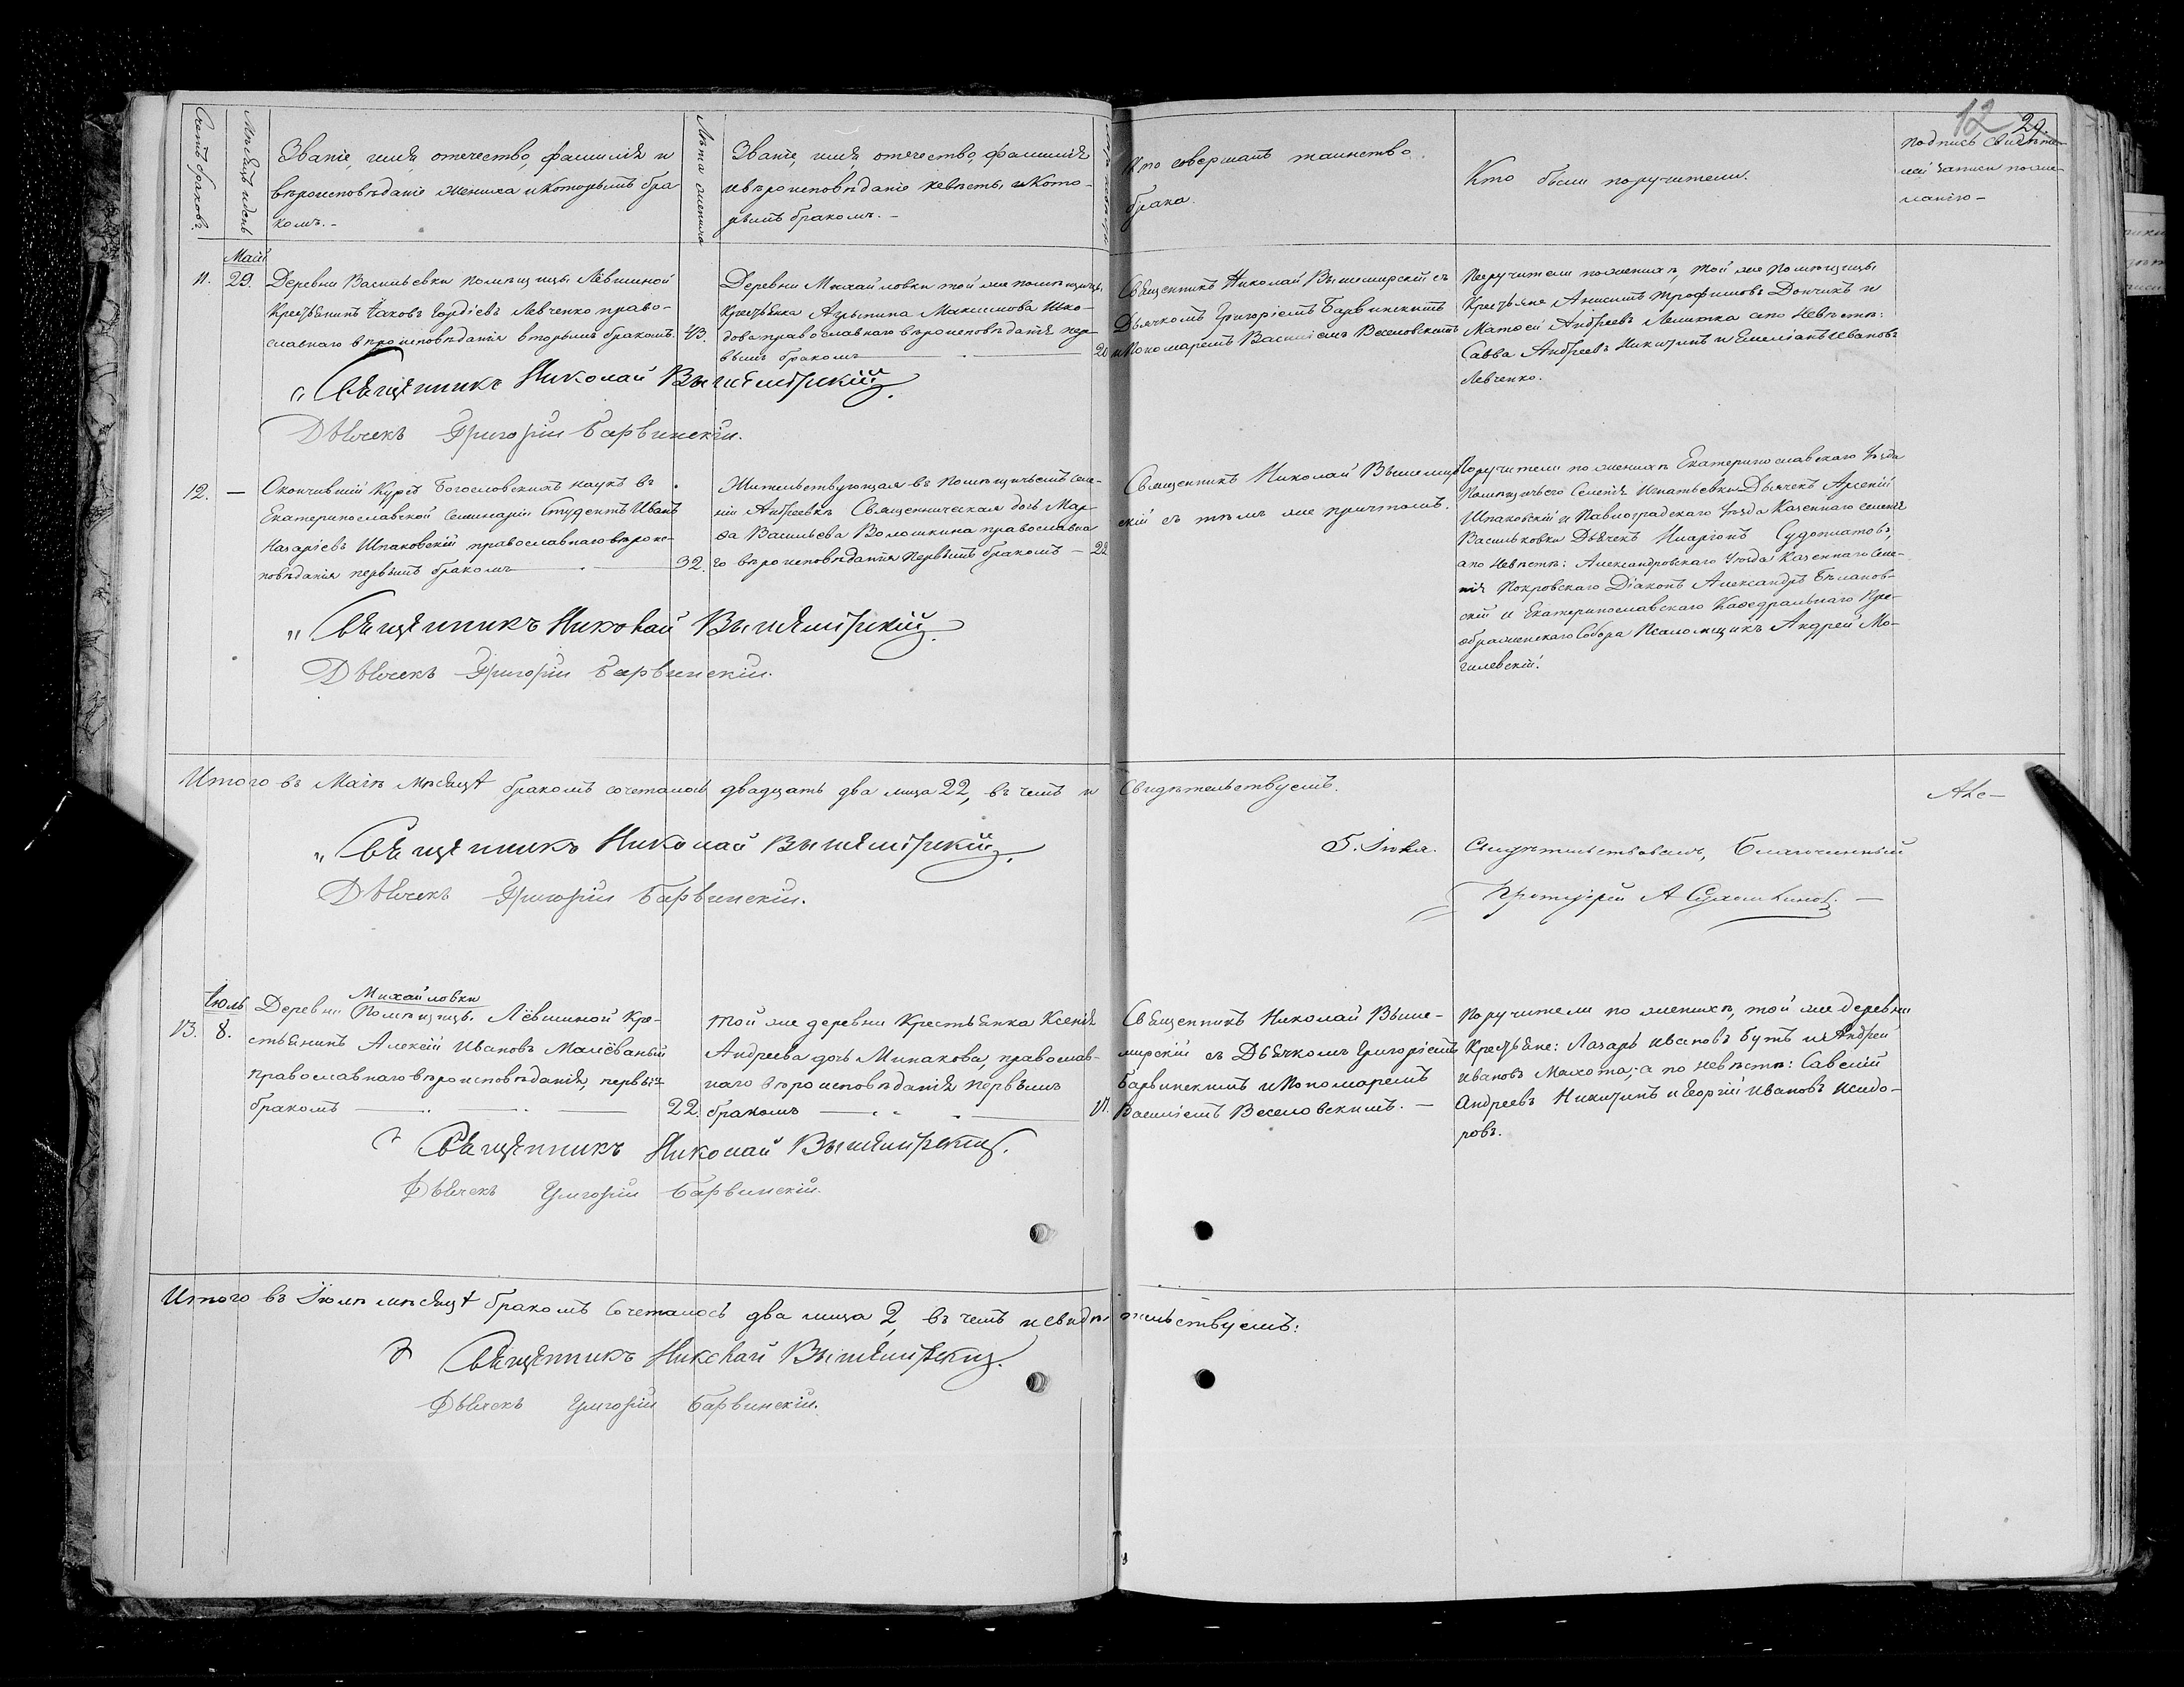 12
29.
Счетъ браковъ.
Мѣсяцъ и день
Званіе, имя, отечество, фамилія и
вѣроисповѣданіе жениха и которымъ бра
комъ. -
Лѣта жениха
Званіе, имя, отечество, фамилія
и вѣроисповѣданіе невѣсты и кото-
рымъ бракомъ. -
Кто совершалъ таинство
брака.
Кто были поручители.
Подпись свидѣте-
лей записи по же-
ланію -
Май
11. 29.
Деревни Васильевки помѣщицы Лёвшиной
Крестьянинъ Іаковъ Гордіевъ Левченко право-
славнаго вѣроисповѣданія вторымъ бракомъ.
43.
Деревни Михайловки той же помѣщицы
Крестьянка Агрипина Максимова
православнаго вѣроисповѣданія пер-
вымъ бракомъ
20
Священникъ Николай Вышемирскій съ
Дьячкомъ Григоріемъ Барвинскимъ
и Пономаремъ Василіемъ Веселовскимъ
Поручители по женихѣ, той же помѣщицы
Крестьяне Анисимъ Трофимовъ Дончикъ и
Матѳей Андреевъ а по невѣстѣ:
Савва Андреевъ Никитинъ и Емеліанъ Ивановъ
Левченко.
Священникъ Николай Вышемірскій.
Дьячекъ Григорій Барвинскій.
12. —
Окончившій Курсъ Богословскихъ наукъ въ
Екатеринославской Семинаріи Студентъ Иванъ
Назаріевъ Шпаковскій православнаго вѣроис-
повѣданія первымъ бракомъ
32.
Жительствующая въ помѣщичьемъ селе-
ніи Андреевкѣ Священническая дочь Мар-
ѳа Васильева Волошкина православна
го вѣроисповѣданія первымъ бракомъ —
22
Священникъ Николай Вышемир
скій съ тѣмъ же причтомъ.
Поручители по женихѣ Екатеринославскаго Уѣзда
помѣщичьего Селенія Игнатьевки Дьячекъ Арсеній
Шпаковскій и Павлоградскаго Уѣзда Казеннаго селенія
Васильковки Дьячекъ Иларіонъ
а по невѣстѣ: Александровскаго Уѣзда Казеннаго селе-
нія Покровскаго Діаконъ Александръ Баланов-
скій и Екатеринославскаго Каѳедральнаго Пре-
ображенскаго Собора Псаломщикъ Андрей Мо-
гилевскій.
Священникъ Николай Вышемірскій.
Дьячекъ Григорій Барвинскій.
Итого въ Маіѣ мѣсяцѣ бракомъ сочеталось двадцать два лица 22, въ чемъ и Свидѣтельствуемъ.
Священникъ Николай Вышемірскій.
Дьячекъ Григорій Барвинскій.
5. Іюня. Свидѣтельствовалъ, Благочинный
Протоіерей А
Іюль
13. 8.
Михайловки
Деревни помѣщицы Лёвшиной Кре-
стьянинъ Алексій Ивановъ Малёваный
православнаго вѣроисповѣданія, первымъ
бракомъ
22.
Той же деревни Крестьянка Ксенія
Андреева дочь Минакова, православ-
наго вѣроисповѣданія первымъ
бракомъ
17.
Священникъ Николай Выше-
мирскій съ Дьячкомъ Григоріемъ
Барвинскимъ и Пономаремъ
Василіемъ Веселовскимъ. —
Поручители по женихѣ, той же деревни
Крестьяне: Лазарь Ивановъ Бутъ и Андрей
Ивановъ Махота; а по невѣстѣ: Савелій
Андреевъ Никитинъ и Георгій Ивановъ Исидо-
ровъ.
Священникъ Николай Вышемірскій.
Дьячекъ Григорій Барвинскій.
Итого въ Іюлѣ мѣсяцѣ бракомъ сочеталось два лица 2, въ чемъ и свидѣтельствуемъ:
Священникъ Николай Вышемірскій.
Дьячекъ Григорій Барвинскій.